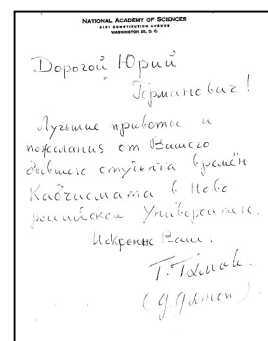 NATIONAL ACADEMY OF SCIENCES
2101 CONSTITUTION AVENUE
WASHINGTON 25, D. C.
Дорогой Юрий
Германович!
Лучшие приветы и
пожелания от Вашего
бывшего студента времён
Кабчисмата в Ново
российском
Искренне Ваш.
Г. Гамов.